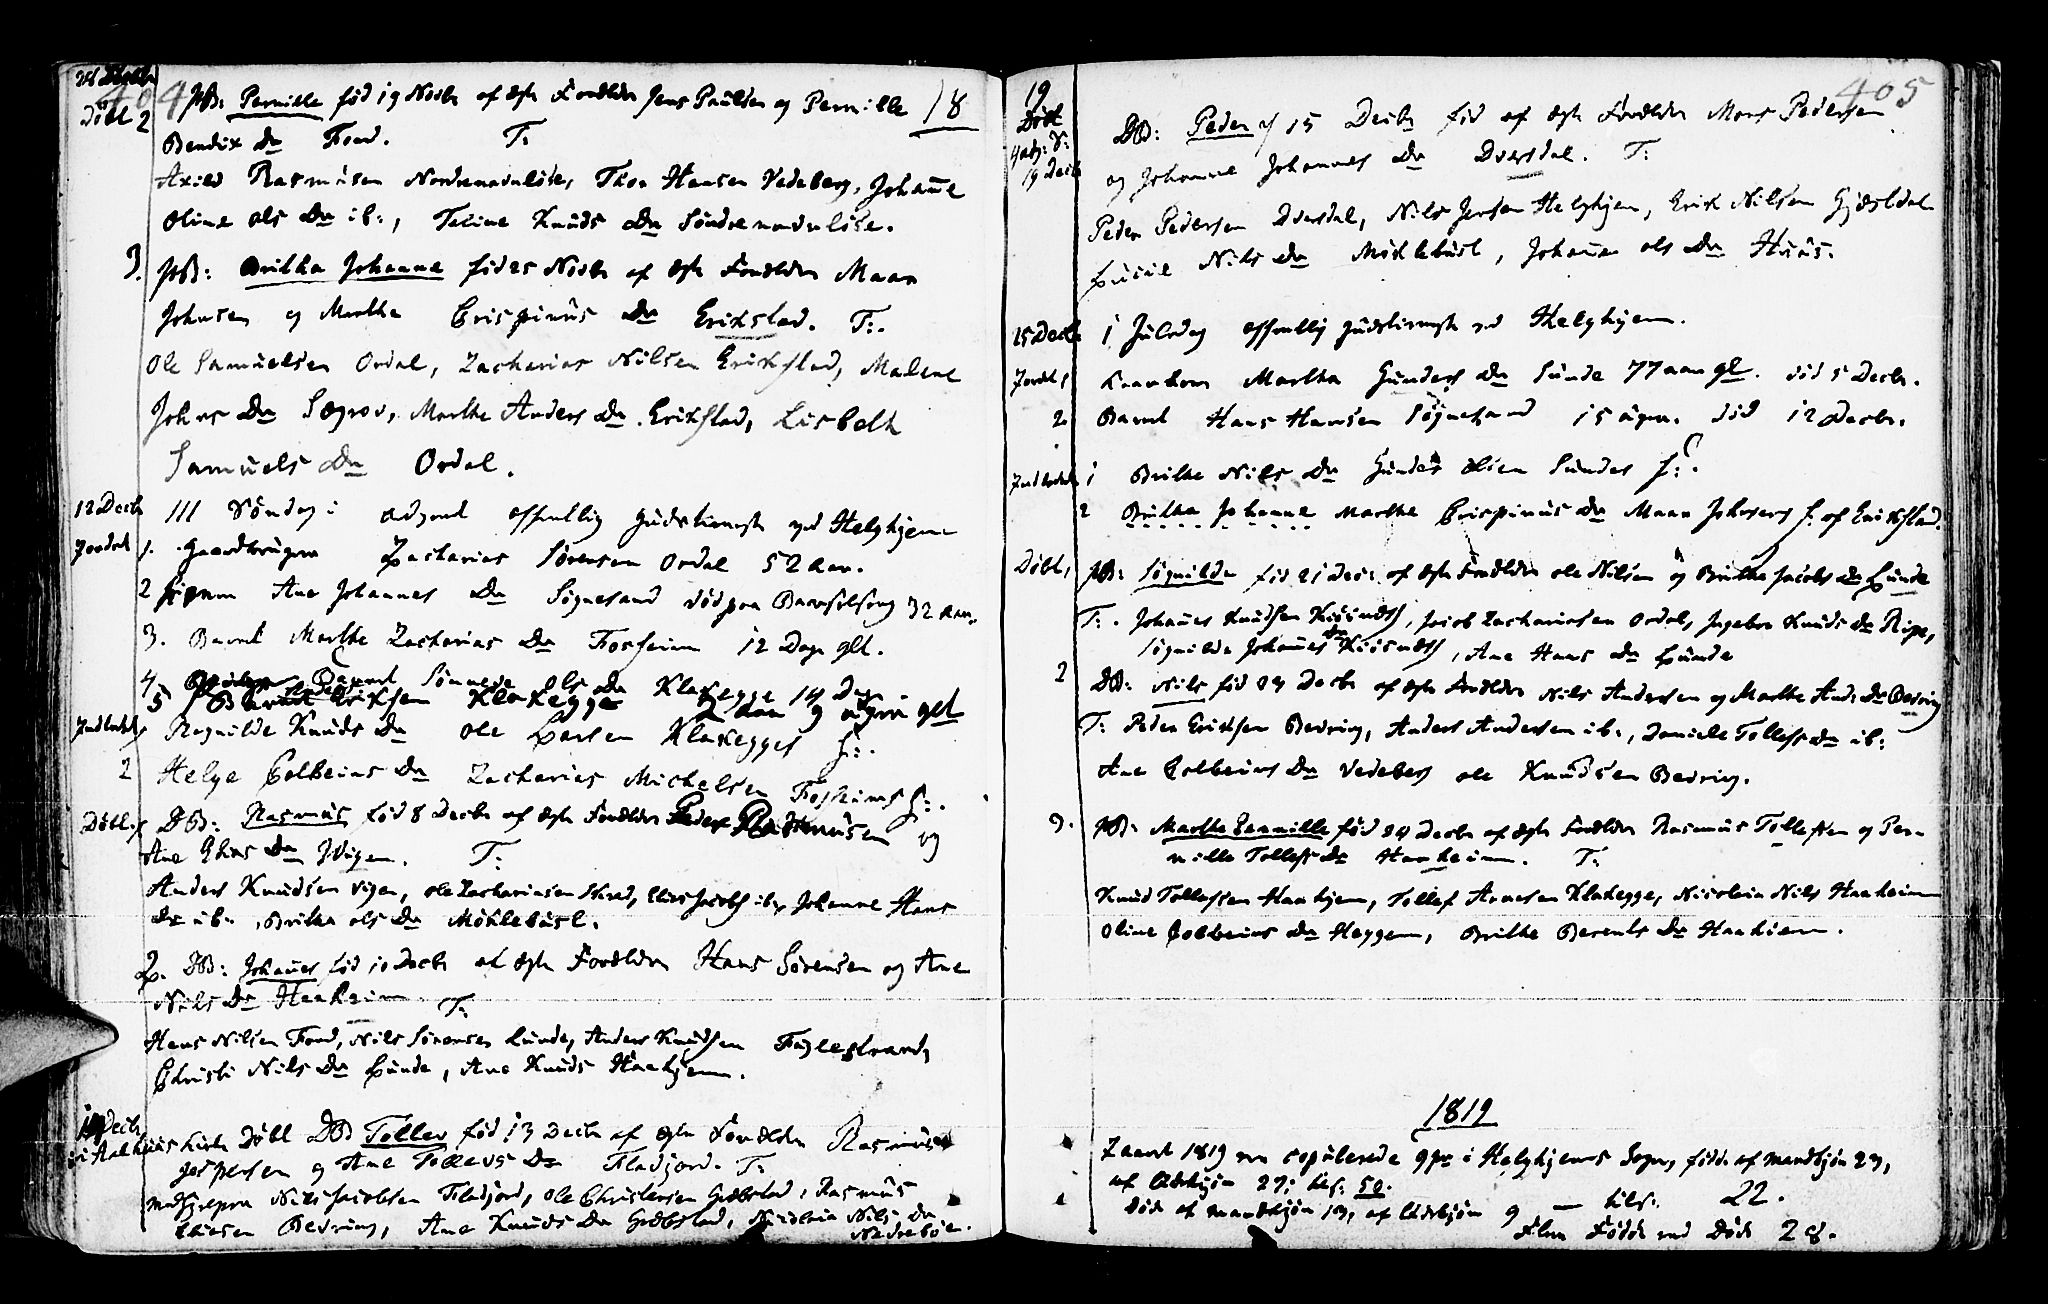 404
18
Døbt 2
PB: Pernille fød 19 Novbr af Egte Forældre Jens Paulsen og Pernille
Bendix Dr Fond. T:
Rasmusen Thor Hansen Vedeberg, Johañe
Oline Ols Dr ib:, Knuds Dr
3. PB: Britha Johanne fød 25 Novbr af Egte Forældre
Johnsen og Marthe Crispinus Dr Erikstad. T:.
Ole Samuelsen Ordal, Zacharias Nilsen Erikstad, Madene
Johns Dr Søgrov, Marthe Anders Dr Erikstad, Lisbeth
Samuels Dr Ordal.
12 Decbr III Søndag i advent offentlig Gudstieneste ved Helghjem
Jordet 1. Gaardbruger Zacharias Sørensen Ordal 52 Aar.
2 Ane Johannes Dr Søgnesand død paa Barselseng 32 Aar.
3. Barnet Marthe Zacharias Dr Fosheim 12 Dage glt.
4 Barnet Ols Dr Klakegge 14 Dage
5 Eriksen Klakegge 9 uger glt
Indledet 1 Ragnilde Knuds Dr Ole Larsen Klakegges H:.
2 Helge Colbeins Dr Zacharias Michelsen Fosheims H:.
Døbt. 1 DB: Rasmus fød 8 Decbr af Egte Forældre Peder Rasmusen og
Ane Elias Dr Wigen. T:
Anders Knudsen Vigen, Ole Zachariasen Elias Jacobs ib, Johanne Hans
Dr ib:, Britha Ols Dr Møklebust.
2. DB: Johañes fød 10 Decbr af Egte Forældre Hans Sørensen og Ane
Nils Dr Haaheim. T:
Hans Nilsen Fond, Nils Sørensen Lunde, Anders Knudsen
Christi Nils Dr Lunde, Ane Knuds Haahjem.
19 Decbr
i Aalhuus Kirke Døbt DB Tollev fød 13 Decbr af Egte Forældre Rasmus
Jespersen og Ane Tollevs Dr Fladjord. T:
Nils Jacobsen Fladjord, Ole Christensen Grøbstad, Rasmus
Eliasen Bedring, Ane Knuds Dr Grøbstad, Nicolina Nils Dr
Nedrebøe.
405
19
Døbt
4 adv: S:
19 Decbr
DB: Peder 15 Decbr fød af Egte Forældre Mons Pedersen
og Johanne Johannes Dr Dversdal. T:
Peder Pedersen Dversdal, Nils Jensen Helghjem, Erik Nilsen Gjæsdal
Nils Dr Møklebust, Johañe Ols Dr Huus.
25 Decbr 1 Juledag offentlig Gudstieneste ved Helghjem.
Jordet 1 Marthe Gunders Dr Sunde 77 aar gl. død 5 Decbr.
2. Barnet Hans Hansen Søgnesand 15 uger. død 12 Decbr.
Indledede 1 Brithe Nils Dr Gunder Olsen Sundes H:.
2 Britha Johanne Marthe Crispinus Dr Johnsens H: af Erikstad.
Døbt, 1 PB: Søgnilde fød 21 Decbr af Egte Forældre Ole Nilsen og Britha Jacobs Dr Lunde
T:. Johañes Knudsen Jacob Zachariasen Ordal, Ingebor Knuds Dr Ripe,
Søgnilde Johañes Dr Ane Hans Dr Lunde
2 DB: Nils fød 23 Decbr af Egte Forældre Nils Andersen og Marthe Anders Dr Bedring
T: Peder Eriksen Bedring, Anders Andersen ib:, Tollefs Dr ib:
Ane Colbeins Dr Vedeberg Ole Knudsen Bedring.
3. PB: Marthe Pernille fød 24 Decbr af Egte Forældre Rasmus Tollefsen og Per-
nille Tollefs Dr Haaheim. T:
Knud Tollefsen Haahjem, Tollef Klakegge, Nicolina Nils Haaheim
Oline Colbeins Dr Heggem, Brithe Berents Dr Haahiem.
1819
I aaret 1819 ere copulerede 9 par i Helghjems Sogn, fødde af Mandkjøn 23,
af Qvindekjøn 27; tils: 50.
Døde af Mandkjøn 13, af Qvindekjøn 9 — tils: 22.
Flere Fødde end Døde 28.